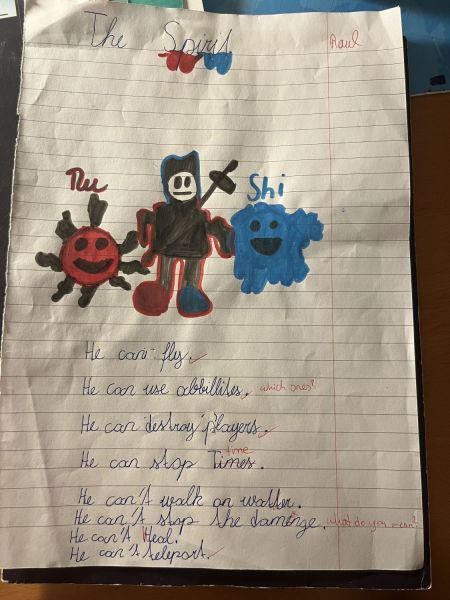 The Spirit
Raul
Shi
He can fly.
He can use abbillites. which ones?
He can destroy players.
time
He can stop Times.
He can't walk on watter.
He can't stop the damenge. what do you mean?
He can't Heal.
He can't teleport.